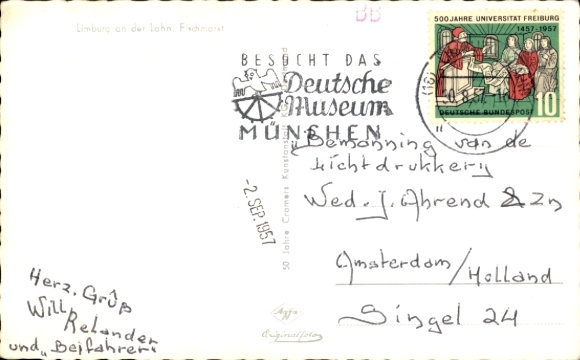 Limburg an der Lahn, Fischmarkt
BB
500 JAHRE UNIVERSITÄT FREIBURG
1457-1957
10
DEUTSCHE BUNDESPOST
BESUCHT DAS
Deutsche
Museum
MÜNCHEN
(16)
-2. SEP. 1957
50 Jahre Cramers Kunstanstalt KG, Dortmund
Agfa
Originalfoto
"Bemanning van de
Lichtdrukkery
Wed. J. Ahrend & Zn
Amsterdam/Holland
Singel 24
Herz. Grüß
Will
Relander
und "Beifahrer"